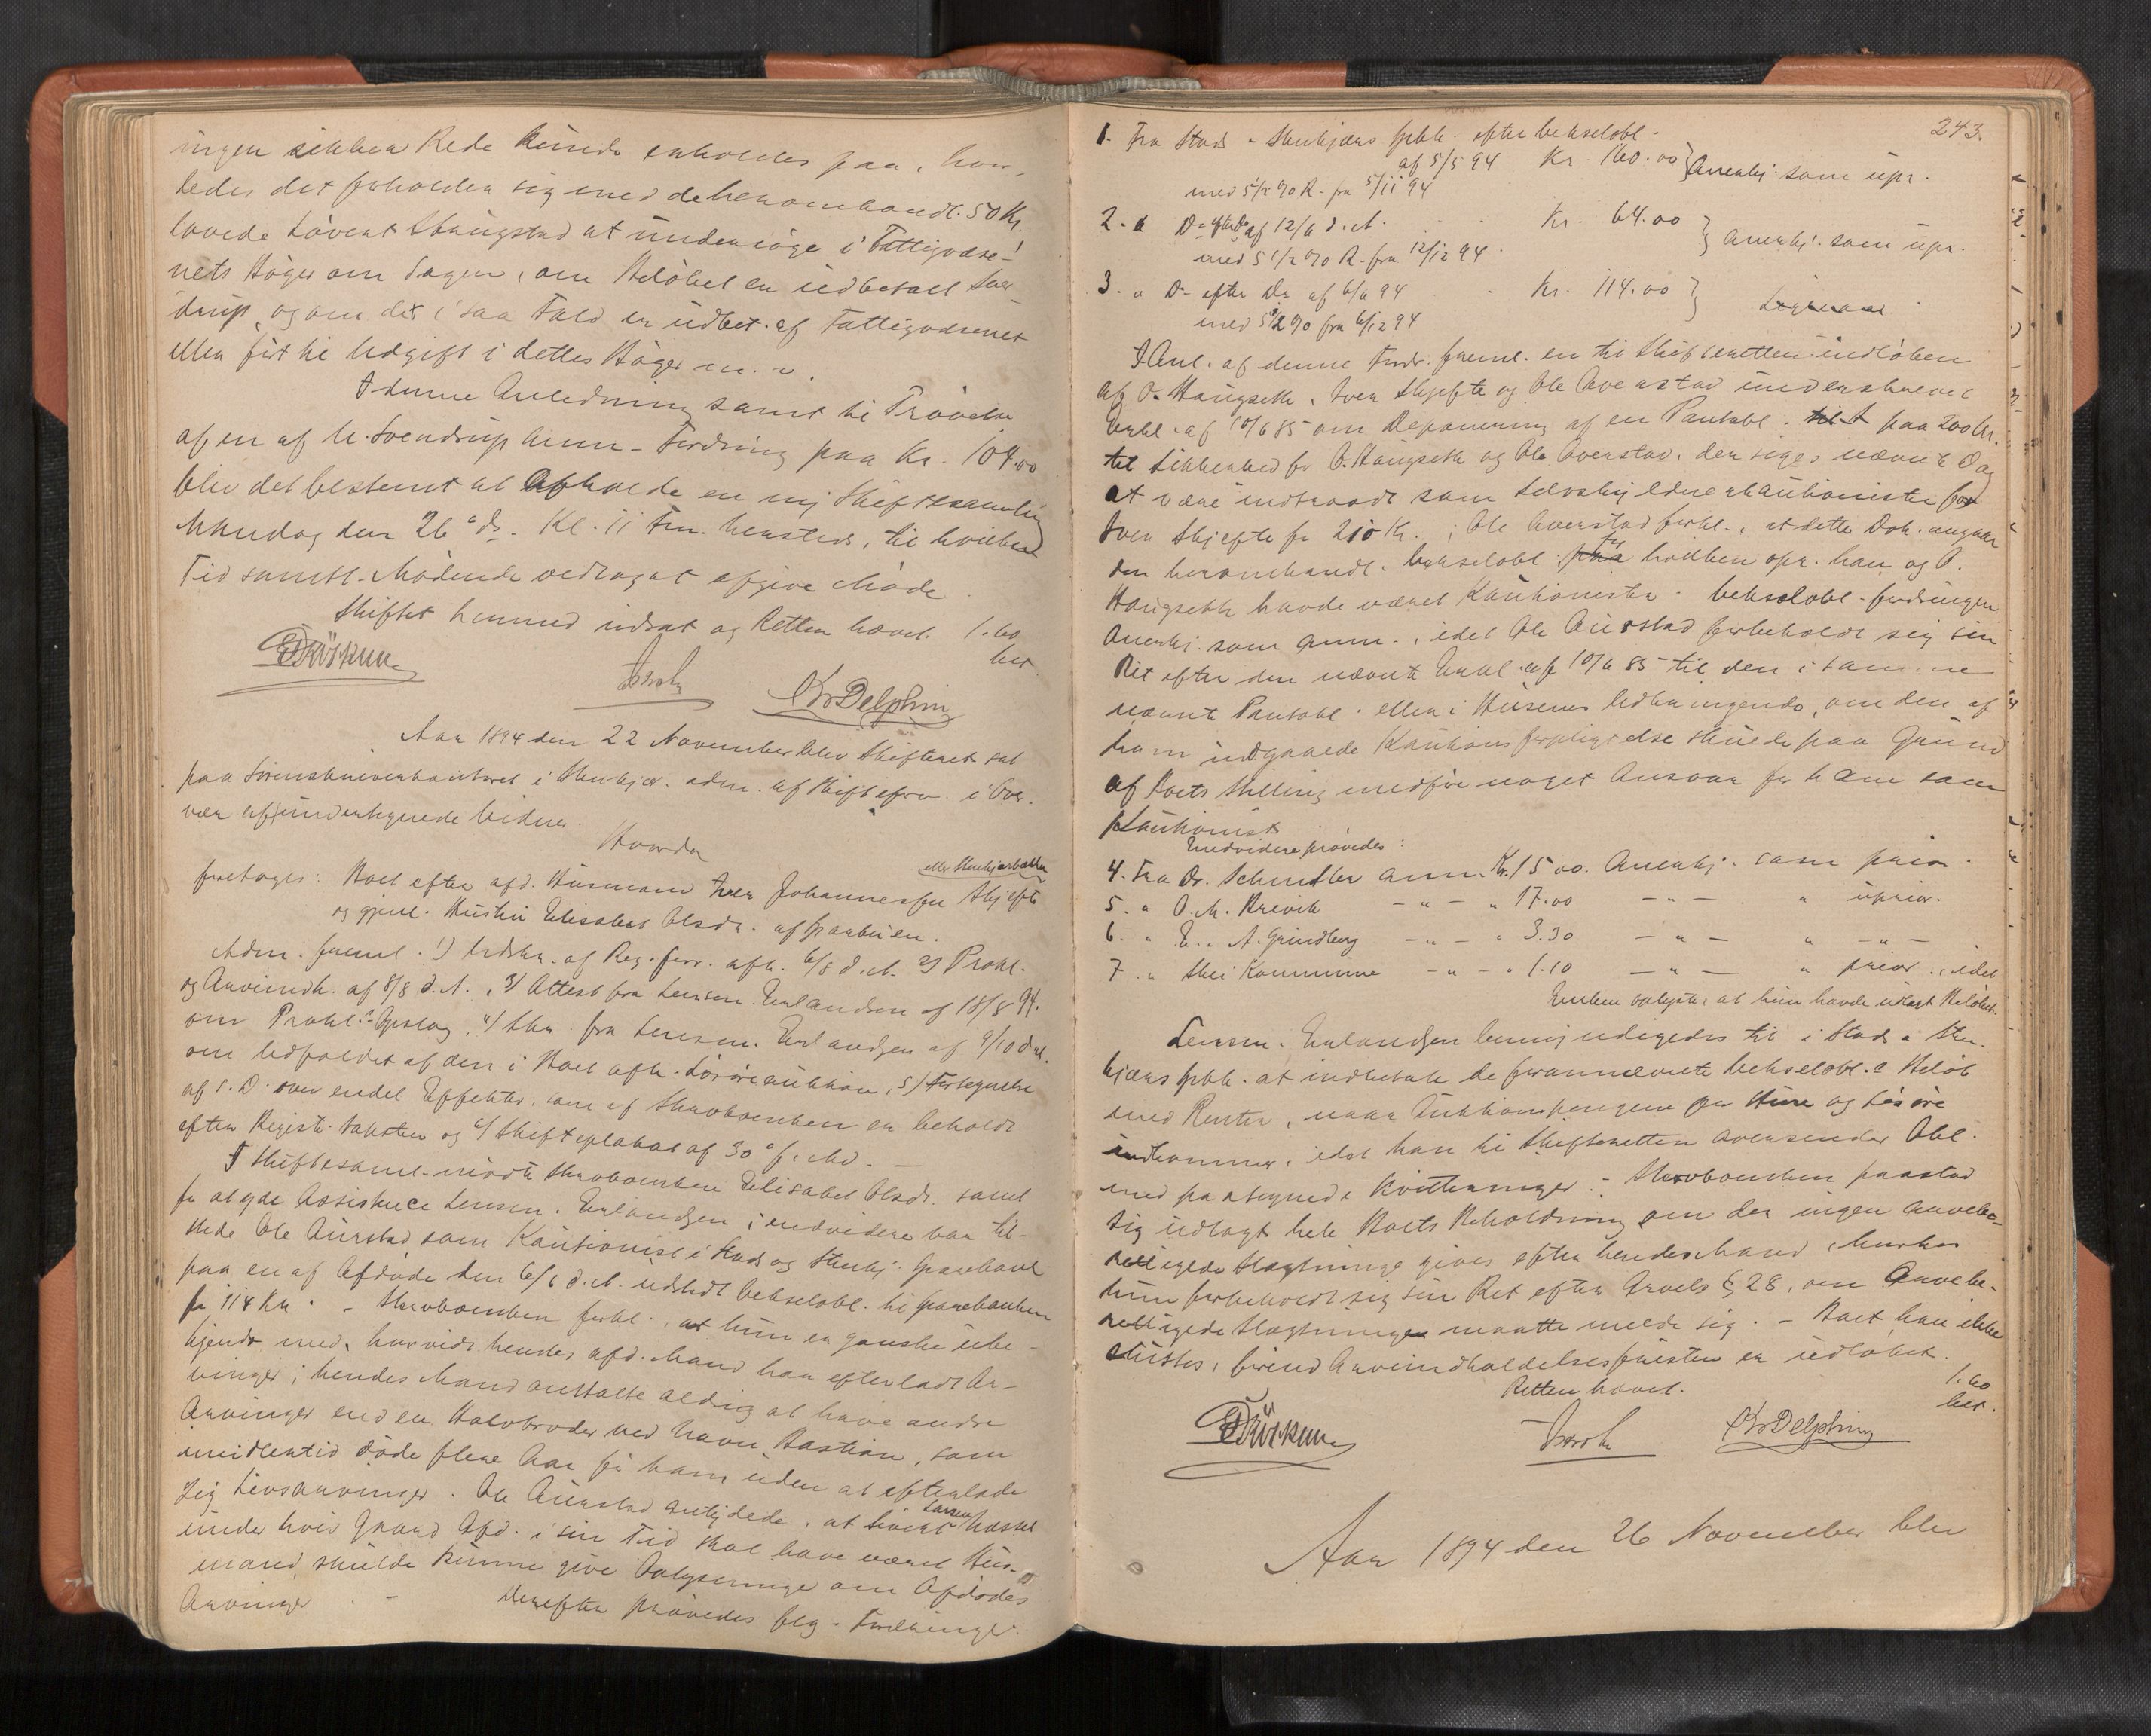 ingen sikker Rede kunde erholdes paa, hvor-
ledes det forholder sig med de heromhandl. 50 Kr.
lovede Lovert Skungstad at undersøge i Fattigvæse-
nets Bøger om Sagen, om Beløbet er udbetalt Sver-
drup, og om det i saa Fald er udbet. af Fattigvæsenet
eller ført til Udgift i dettes Bøger m. v.
I denne Anledning samt til Prøvelse
af en af Svendrup anm. Fordring paa Kr. 104.00
blev det bestemt at afholde en ny Skiftesamling
Mandag den 26 ds. Kl. 11 Fm. hersteds, til hvilken
Tid samtl. Mødende vedtoges at afgive Møde.
Skiftet hermed udsat og Retten hævet. 1.60
ber
Kr Delphin
Aar 1894 den 22 November blev Skifteret sat
paa Sorenskriverkontoret i Stenkjær adm. af Skifteforv. i Over-
vær af undertegnede Vidner.
Hvorda
eller Stenkjærbakken
foretoges: Boet efter afd. Husmand Iver Johannessen Skjefte
og gjenl. Hustru Elisabet Olsdr. af
Adm. freml. 1) Udskr. af Reg. forr. afh. 6/8 d. A. 2) Prokl.
og Arveindk. af 8/8 d. A., 3) Attest fra Lensm. Erlandsen af 18/8 94.
om Prokl. Opslag, 4) Skr. fra Lensm. Erlandsen af 9/10 d. A.
om Udfaldet af den i Boet afh. Løsøreauktion, 5) Fortegnelse
af s. D. over endel Effekter, som af Skrvboenken er beholdt
efter Registr. Taksten og 6) Skifteplakat af 30 f. Md. —
I Skiftesaml. mødte Skrvboenken Elisabet Olsdr. samt
for at yde Assistence Lensm. Erlandsen; endvidere var til-
stede Ole Aurstad som Kautionist i Stods og Stenkj. Sparebank
paa en af Afdøde den 6/6 d. A. udstedt Vekselobl. til Sparebanken
for 114 Kr. - Skrvboenken forkl., at hun er ganske ube-
kjendt med, hvorvidt hendes afd. Mand har efterladt Ar-
vinger; hendes Mand omtalte aldrig at have andre
Arvinger end en Halvbroder ved Navn Bastian, som
imidlertid døde flere Aar før ham uden at efterlade
sig Livsarvinger. Ole Aurstad antydede, at Sivert Larsen
under hvis Gaard Afd. i sin Tid skal have været Hus-
mand, skulde kunne give Oplysninger om Afdødes
Arvinger. -
Derefter prøvedes flg. Fordringer.
243.
1. Fra Stods & Stenkjærs Spbk. efter Vekselobl.
af 5/5 94 Kr. 160.00 } Anerkj. som upr.
med 5 1/2 % R. fra 5/11 94
2. " D. efter Do af 12/6 d. A. Kr. 64.00 } Anerkj. som upr.
med 5 1/2 % R. fra 12/12 94
3. " D. efter Do af 6/6 94 Kr. 114.00 }
med 5 1/2 % fra 6/12 94
I Anl. af denne Fordr. freml. en til Skifteretten indløben
af O. Haugseth, Iver Skjefte og Ole Overstad underskrevet
Erkl. af 10/6 85 om Deponering af en Pantobl. paa 200 Kr.
til Sikkerhed for O. Haugseth og Ole Overstad, der siges nævnte Dag
at være indtraadt som Selvskyldnerkautionister for
Iver Skjefte for 210 Kr.; Ole Averstad forkl., at dette Dok. angaar
den heromhandl. Vekselobl. for hvilken opr. han og O.
Haugseth havde været Kautionister. Vekselobl.-fordringen
Anerkj. som anm., idet Ole Aurstad forbeholdt sig sin
Ret efter den nævnte Erkl. af 10/6 85 til den i samme
nævnte Pantobl. eller i Husenes Udbringende, om den af
ham indgaaede Kautionsforpligtelse skulde paa Grund
af Boets Stilling medføre noget Ansvar for ham som
Kautionist.
Endvidere prøvedes:
4. Fra Dr. Schmtler anm. Kr. 15.00. Anerkj. som prior.
5. " O. M. Brevik — " — " 17.00 — " — " uprior.
6. " E. A. Grindberg — " — " 3.30 — " — " — " —
7. " Skei Kommune — " — " 1.10 — " — " prior., idet
Enken oplyste, at hun havde udlagt Beløbet.
Lensm. Erlandsen bemyndigedes til i Stods & Sten-
kjærs Spbk. at indbetale de forannævnte Vekselobl.s Beløb
med Renter, naar Auktionspengene for Huse og Løsøre
indkommer, idet han til Skifteretten oversender Obl.
med paategnede Kvitteringer. - Skrvboenken paastod
sig udlagt hele Boets Beholdning om der ingen arvebe-
rettigede Slægtninge gives efter hendes Mand, hvorhos
hun forbeholdt sig sin Ret efter Arvels § 28, om Arvebe-
rettigede Slægtninge maatte melde sig. - Boet kan ikke
sluttes, førend Arveindkaldelsesfristen er udløbet.
Retten hævet. 1.60
ber.
Kr Delphin
Aar 1894 den 26 November blev